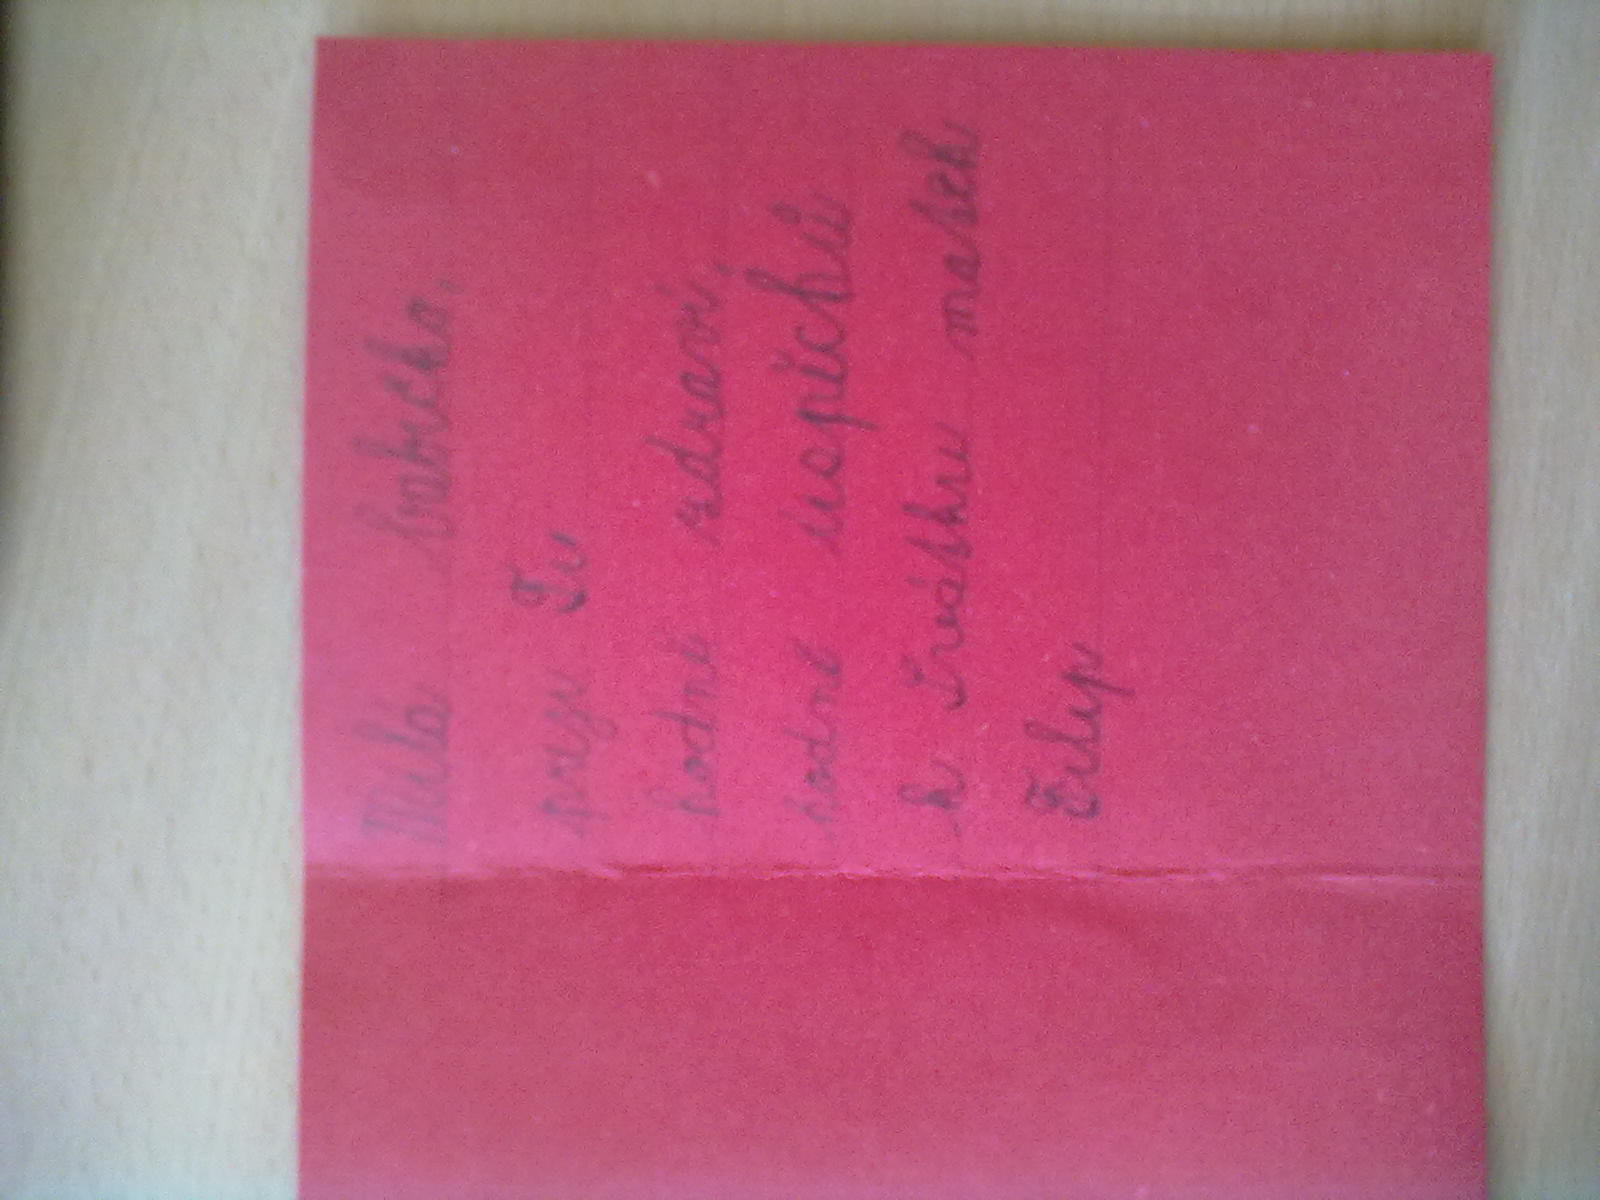 Milá babičko,
přeju Ti
hodně zdraví,
hodně úspěchů
k Tvátku mašek
Filip